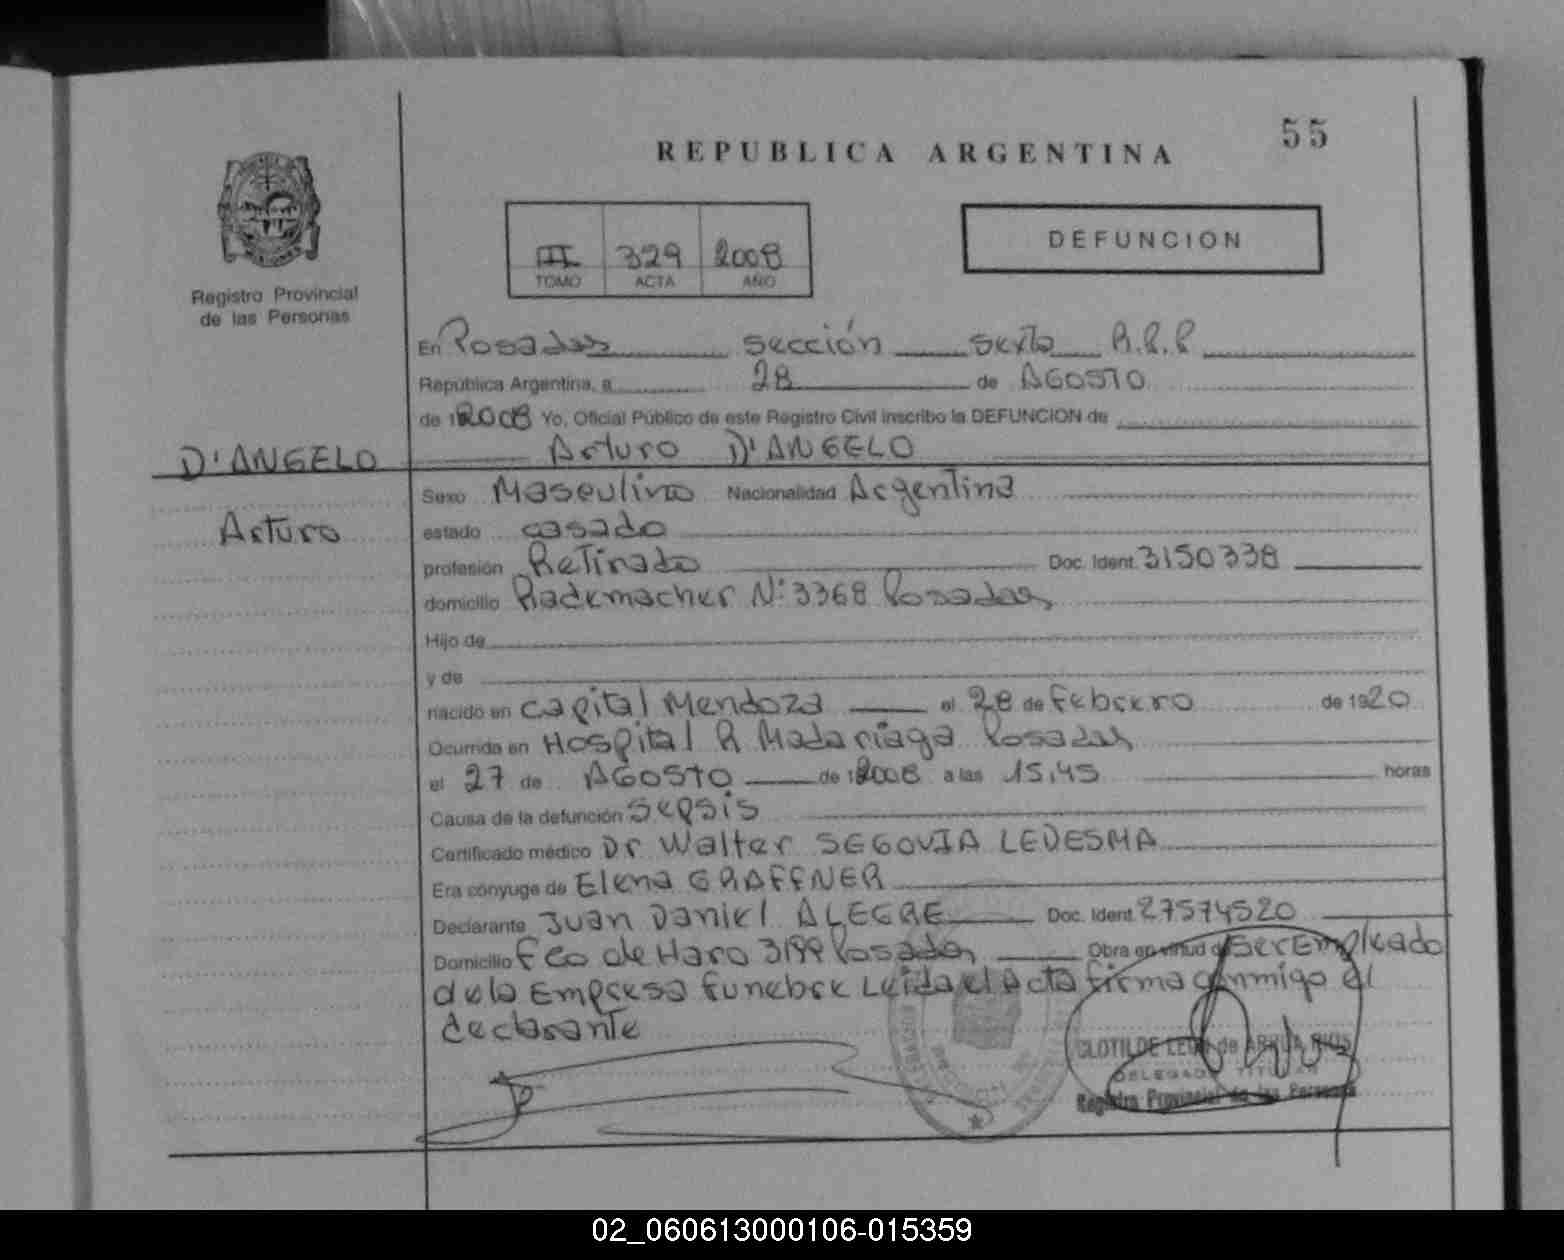 55
REPUBLICA ARGENTINA
II 329 2008
TOMO ACTA AÑO
DEFUNCION
Registro Provincial
de las Personas
En Posadas sección sexta R.P.P
República Argentina, a 28 de AGOSTO
de 2008 Yo, Oficial Público de este Registro Civil inscribo la DEFUNCION de
D'ANGELO
Arturo D'ANGELO
Arturo
Sexo Masculino Nacionalidad Argentina
estado casado
profesión Retirado Doc. Ident. 3150338
domicilio Rademacher N: 3368 Posadas
Hijo de
y de
nacido en Capital Mendoza el 28 de Febrero de 1920
Ocurrida en Hospital R Madariaga Posadas
el 27 de AGOSTO de 2008 a las 15,45 horas
Causa de la defunción Sepsis
Certificado médico Dr Walter SEGOVIA LEDESMA
Era cónyuge de Elena GRAFFNER
Declarante Juan Daniel ALEGRE Doc. Ident. 27574520
Domicilio Fco de Haro 3199 Posadas Obra en virtud de Ser Empleado
de la Empresa Funebre Leida el Acta firma conmigo el
declarante
CLOTILDE LEON de ARRUA RIOS
DELEGADA TITULAR
Registro Provincial de las Personas
02_060613000106-015359